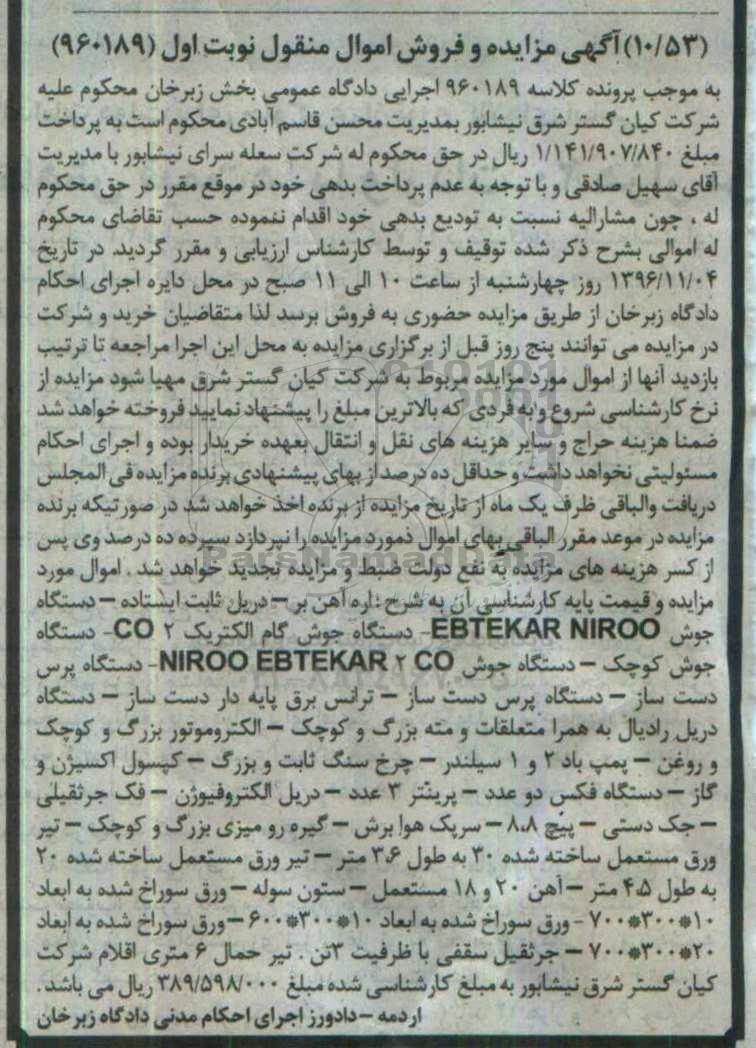 (۱۰/۵۳)آگهی مزایده و فروش اموال منقول نوبت اول (۹۶۰۱۸۹)
به موجب پرونده کلاسه ۹۶۰۱۸۹ اجرایی دادگاه عمومی بخش زبرخان محکوم علیه
شرکت کیان گستر شرق نیشابور بمدیریت محسن قاسم آبادی محکوم است به پرداخت
مبلغ ۱/۱۴۱/۹۰۷/۸۴۰ ریال در حق محکوم له شرکت سعله سرای نیشابور با مدیریت
آقای سهیل صادقی و با توجه به عدم پرداخت بدهی خود در موقع مقرر در حق محکوم
له ، چون مشارالیه نسبت به تودیع بدهی خود اقدام ننموده حسب تقاضای محکوم
له اموالی بشرح ذکر شده توقیف و توسط کارشناس ارزیابی و مقرر گردید. در تاریخ
۱۳۹۶/۱۱/۰۴ روز چهارشنبه از ساعت ۱۰ الی ۱۱ صبح در محل دایره اجرای احکام
دادگاه زبرخان از طریق مزایده حضوری به فروش برسد لذا متقاضیان خرید و شرکت
در مزایده می توانند پنج روز قبل از برگزاری مزایده به محل این اجرا مراجعه تا ترتیب
بازدید آنها از اموال مورد مزایده مربوط به شرکت کیان گستر شرق مهیا شود مزایده از
نرخ کارشناسی شروع و به فردی که بالاترین مبلغ را پیشنهاد نمایید فروخته خواهد شد
ضمنا هزینه حراج و سایر هزینه های نقل و انتقال بعهده خریدار بوده و اجرای احکام
مسئولیتی نخواهد داشت و حداقل ده درصد از بهای پیشنهادی برنده مزایده فی المجلس
دریافت والباقی ظرف یک ماه از تاریخ مزایده از برنده اخذ خواهد شد در صورتیکه برنده
مزایده در موعد مقرر الباقی بهای اموال ذمورد مزایده را نپردازد سپرده ده درصد وی پس
از کسر هزینه های مزایده به نفع دولت ضبط و مزایده تجدید خواهد شد . اموال مورد
مزایده و قیمت پایه کارشناسی آن به شرح : اره آهن بر – دریل ثابت ایستاده – دستگاه
جوش EBTEKAR NIROO- دستگاه جوش گام الکتریک CO ۲- دستگاه
جوش کوچک – دستگاه جوش NIROO EBTEKAR ۲ CO- دستگاه پرس
دست ساز – دستگاه پرس دست ساز – ترانس برق پایه دار دست ساز – دستگاه
دریل رادیال به همرا متعلقات و مته بزرگ و کوچک – الکتروموتور بزرگ و کوچک
و روغن – پمپ باد ۲ و ۱ سیلندر – چرخ سنگ ثابت و بزرگ – کپسول اکسیژن و
گاز – دستگاه فکس دو عدد – پرینتر ۳ عدد – دریل الکتروفیوژن – فک جرثقیلی
– جک دستی – پیچ ۸،۸ – سرپک هوا برش – گیره رو میزی بزرگ و کوچک – تیر
ورق مستعمل ساخته شده ۳۰ به طول ۳،۶ متر – تیر ورق مستعمل ساخته شده ۲۰
به طول ۴،۵ متر – آهن ۲۰ و ۱۸ مستعمل – ستون سوله – ورق سوراخ شده به ابعاد
۱۰*۳۰۰*۷۰۰ - ورق سوراخ شده به ابعاد ۱۰*۳۰۰*۶۰۰ –ورق سوراخ شده به ابعاد
۲۰*۳۰۰*۷۰۰ – جرثقیل سقفی با ظرفیت ۳تن . تیر حمال ۶ متری اقلام شرکت
کیان گستر شرق نیشابور به مبلغ کارشناسی شده مبلغ ۳۸۹/۵۹۸/۰۰۰ ریال می باشد .
اردمه –دادورز اجرای احکام مدنی دادگاه زبرخان
ParsNamadData